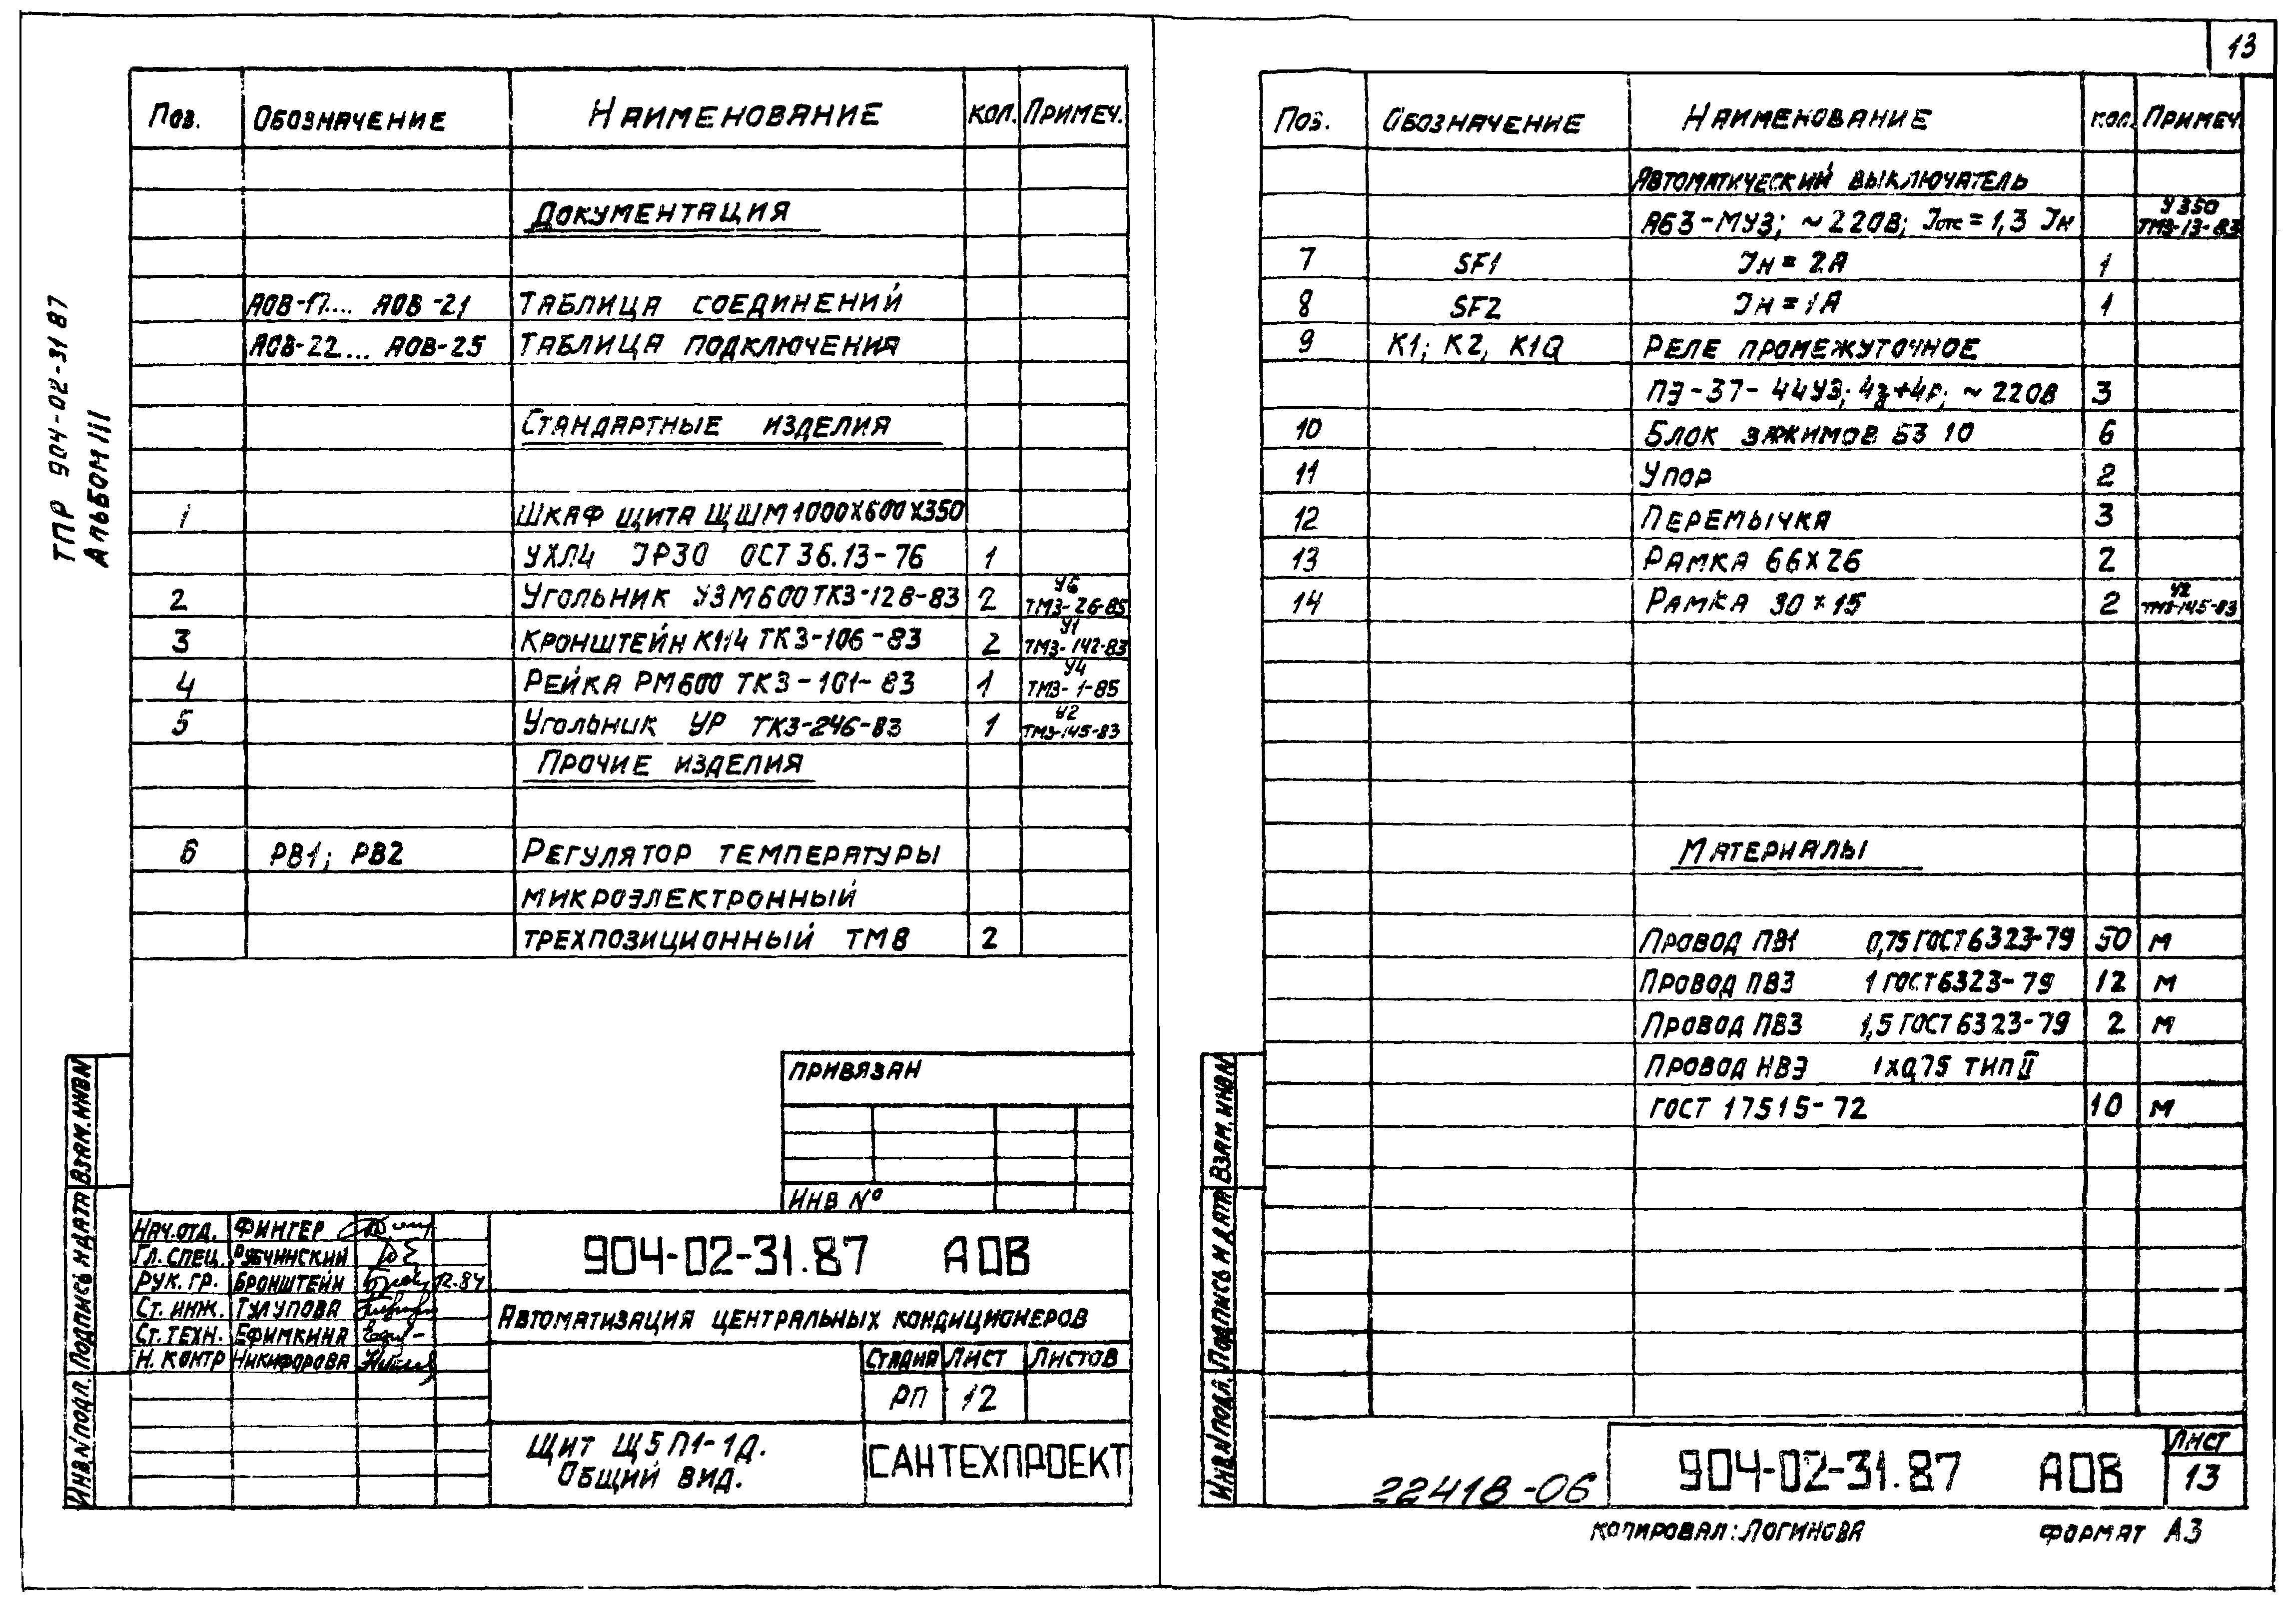 13
ТПР 904-02-31 87
Альбом III
Поз. Обозначение Наименование Кол. Примеч.
Документация
АОВ-17.... АОВ-21 Таблица соединений
АОВ-22... АОВ-25 Таблица подключения
Стандартные изделия
1 Шкаф щита ЩШМ 1000х600х350
УХЛ4 IР30 ОСТ 36.13-76 1
У6
2 Угольник УЗМ600 ТКЗ-128-83 2 ТМЗ-26-85
У1
3 Кронштейн К114 ТКЗ-106-83 2 ТМЗ-142-83
У4
4 Рейка РМ600 ТКЗ-101-83 1 ТМЗ-1-85
У2
5 Угольник УР ТКЗ-246-83 1 ТМЗ-145-83
Прочие изделия
6 РВ1; РВ2 Регулятор температуры
микроэлектронный
трехпозиционный ТМ8 2
Привязан
Инв №
Нач.отд. Фингер
Гл. спец. Рубчинский
Рук. гр. Бронштейн 12.84
Ст. инж. Тулупова
Ст. техн. Ефимкина
Н. контр Никифорова
904-02-31.87 АОВ
Автоматизация центральных кондиционеров
Стадия Лист Листов
РП 12
Щит Щ5П1-1Д.
Общий вид.
САНТЕХПРОЕКТ
Взам. инв N
Подпись и дата
Инв. N подл.
Поз. Обозначение Наименование Кол. Примеч
Автоматический выключатель
У350
А63-МУ3; ~220В; Iотс = 1,3 Iн ТМЗ-13-83
7 SF1 Iн = 2А 1
8 SF2 Iн = 1А 1
9 К1; К2, К1Q Реле промежуточное
ПЭ-37-44У3; 4з+4р; ~220В 3
10 Блок зажимов БЗ 10 6
11 Упор 2
12 Перемычка 3
13 Рамка 66х26 2
У2
14 Рамка 30х15 2 ТМЗ-145-83
Материалы
Провод ПВ1 0,75 ГОСТ 6323-79 50 м
Провод ПВ3 1 ГОСТ 6323-79 12 м
Провод ПВ3 1,5 ГОСТ 6323-79 2 м
Провод НВЭ 1х0,75 тип II
ГОСТ 17515-72 10 м
Взам. инв N
Подпись и дата
Инв. N подл.
22418-06
904-02-31.87 АОВ
Лист
13
Копировал: Логинова Формат А3